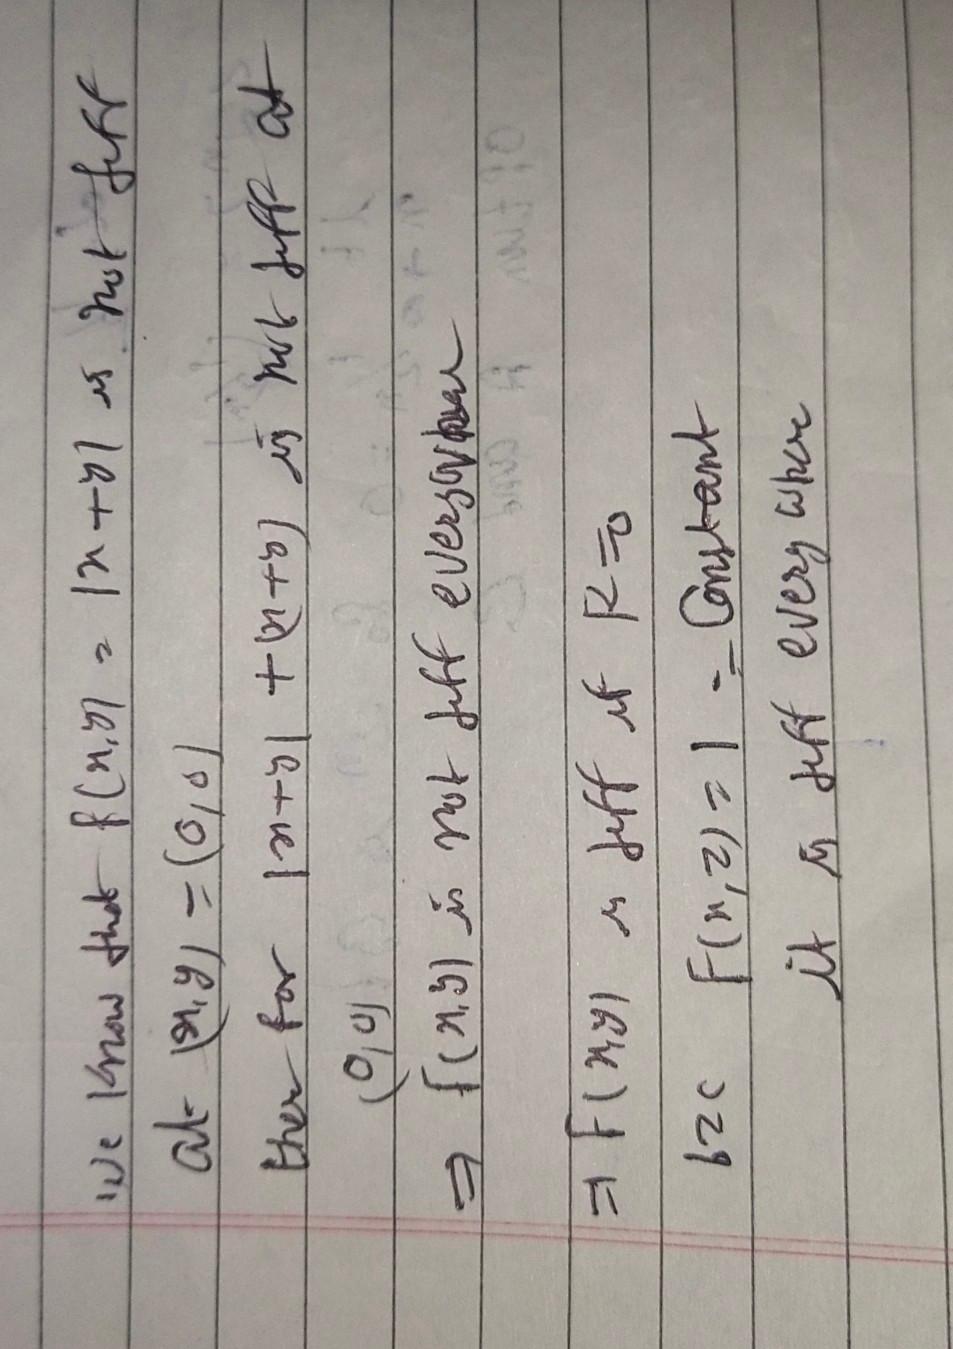 we know that f(x,y) = |x+y| is not diff
at (x,y) = (0,0)
ther for |x+y| + (x+y) is not diff at
(0,0)
⇒ f(x,y) is not diff everywhere
⇒ F(x,y) is diff if K=0
bzc F(x,2) = 1 = Constant
it is diff every where